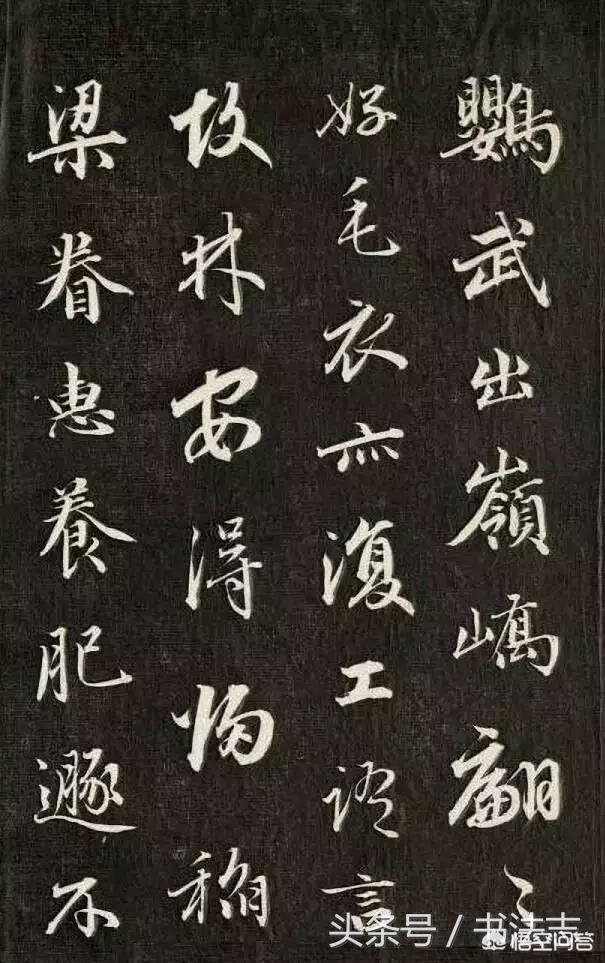 鸚武出嶺嶠翩〻
好毛衣亦復工語言
故林安得歸稻
梁眷惠養肥遯不
头条号／书法志
悟空问答